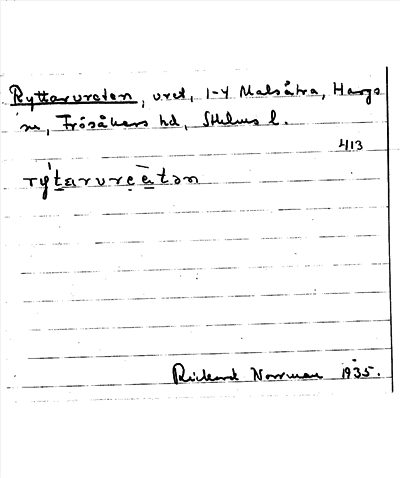 Ryttarvreten, vret, 1-4 Malsätra, Hargs
sn, Frösåkers hd, Sthlms l.
413
rýtarvreètən
Rickard Norrman 1935.